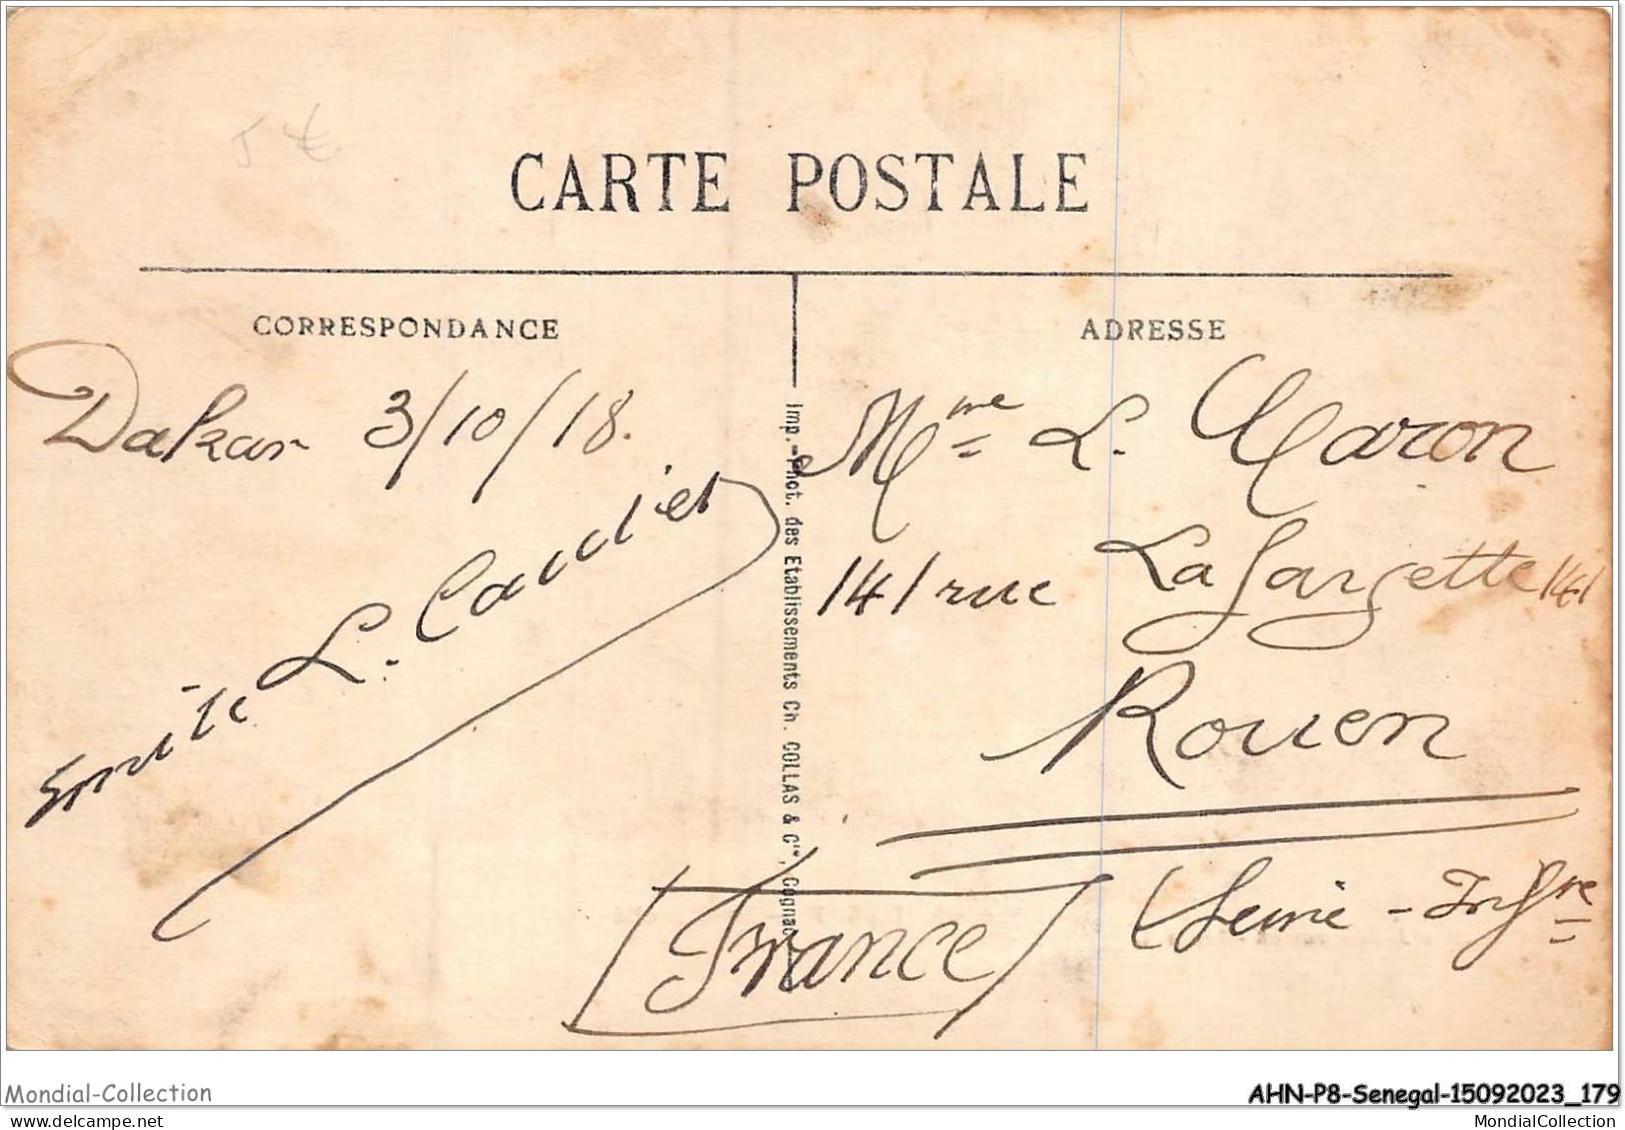 5 €
CARTE POSTALE
CORRESPONDANCE
ADRESSE
Dakar 3/10/18.
L. Caudiet
Imp.-Phot. des Etablissements Ch. COLLAS & Cie, Cognac
Mme L. Maron
141 rue Lafargette 141
Rouen
(Seine-Infre
France
Mondial-Collection
AHN-P8-Senegal-15092023_179
www.delcampe.net
MondialCollection